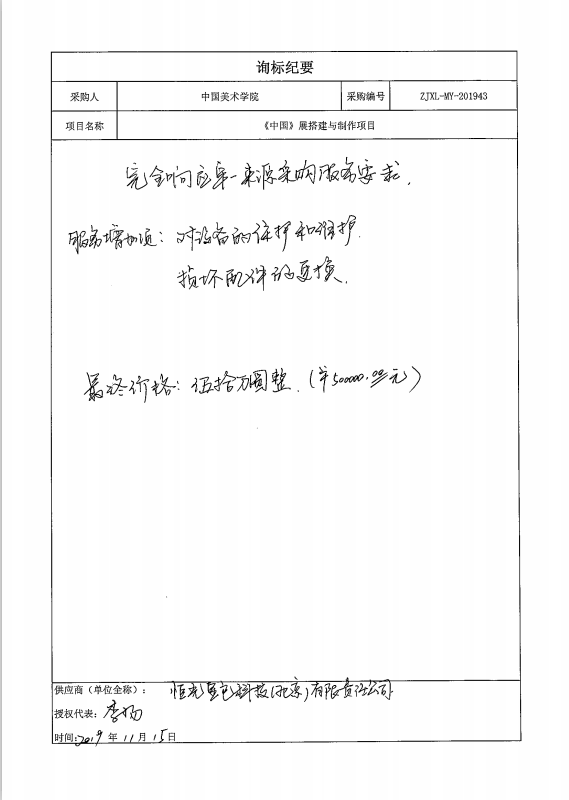 询标纪要
采购人 中国美术学院 采购编号 ZJXL-MY-201943
项目名称 《中国》展搭建与制作项目
完全响应单一来源采购服务要求.
服务增加项：对设备的保护和维护.
损坏配件的更换.
最终价格：伍拾万圆整.（¥500000.00元）
供应商（单位全称）： 恒光 科技(北京)有限责任公司
授权代表：李杨
时间:2019 年 11 月 15 日